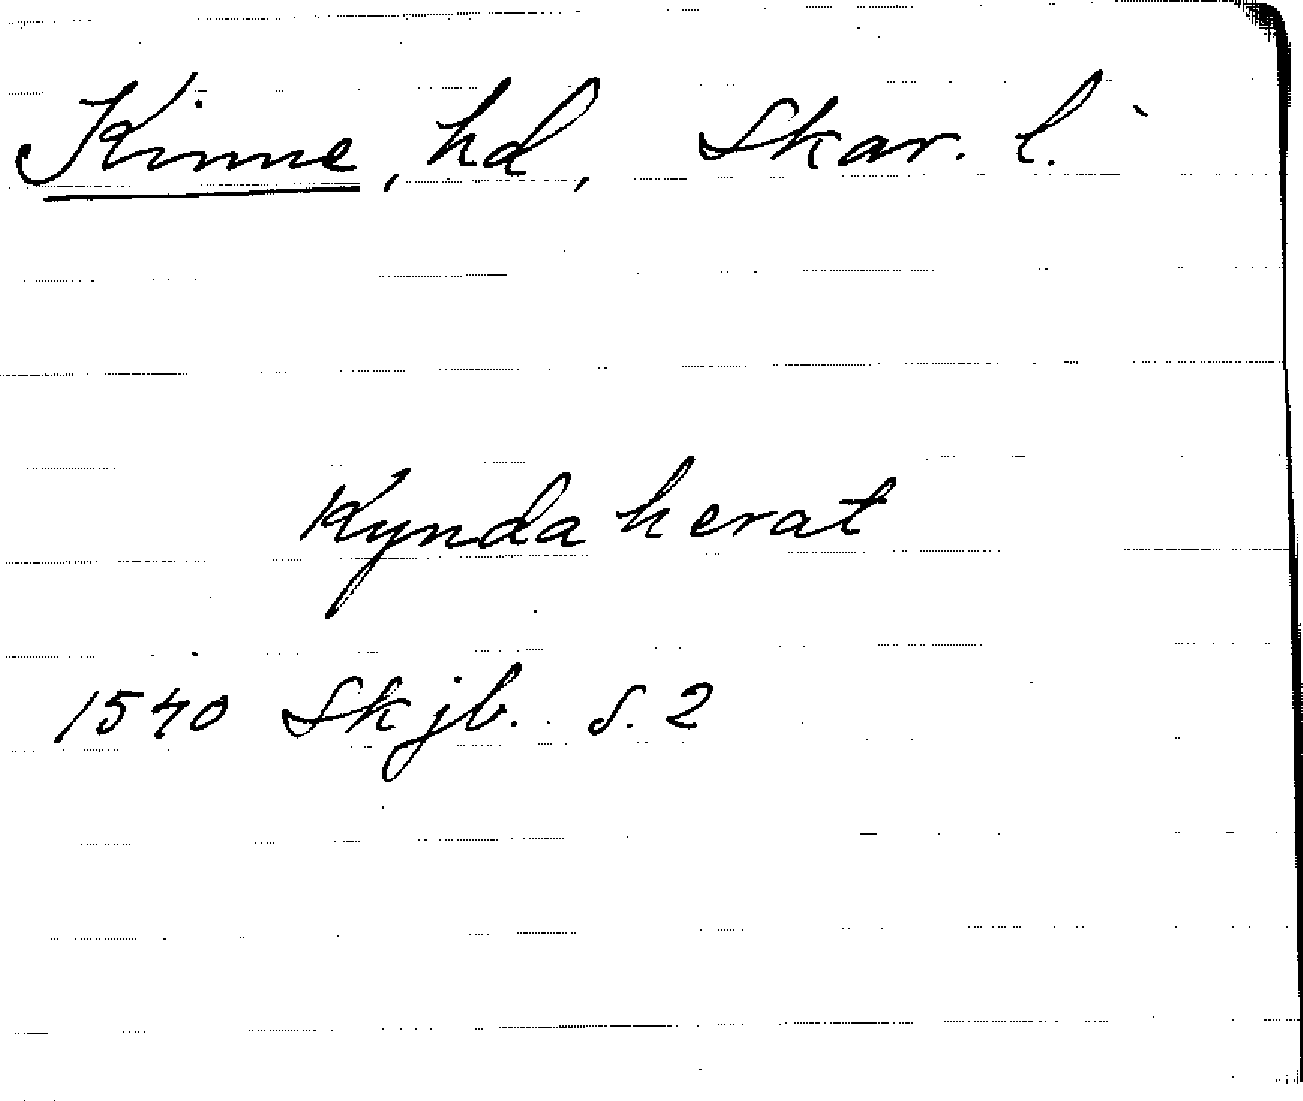 Kinne, hd, Skar. l.
Kynda herat
1540 Skjb. s. 2